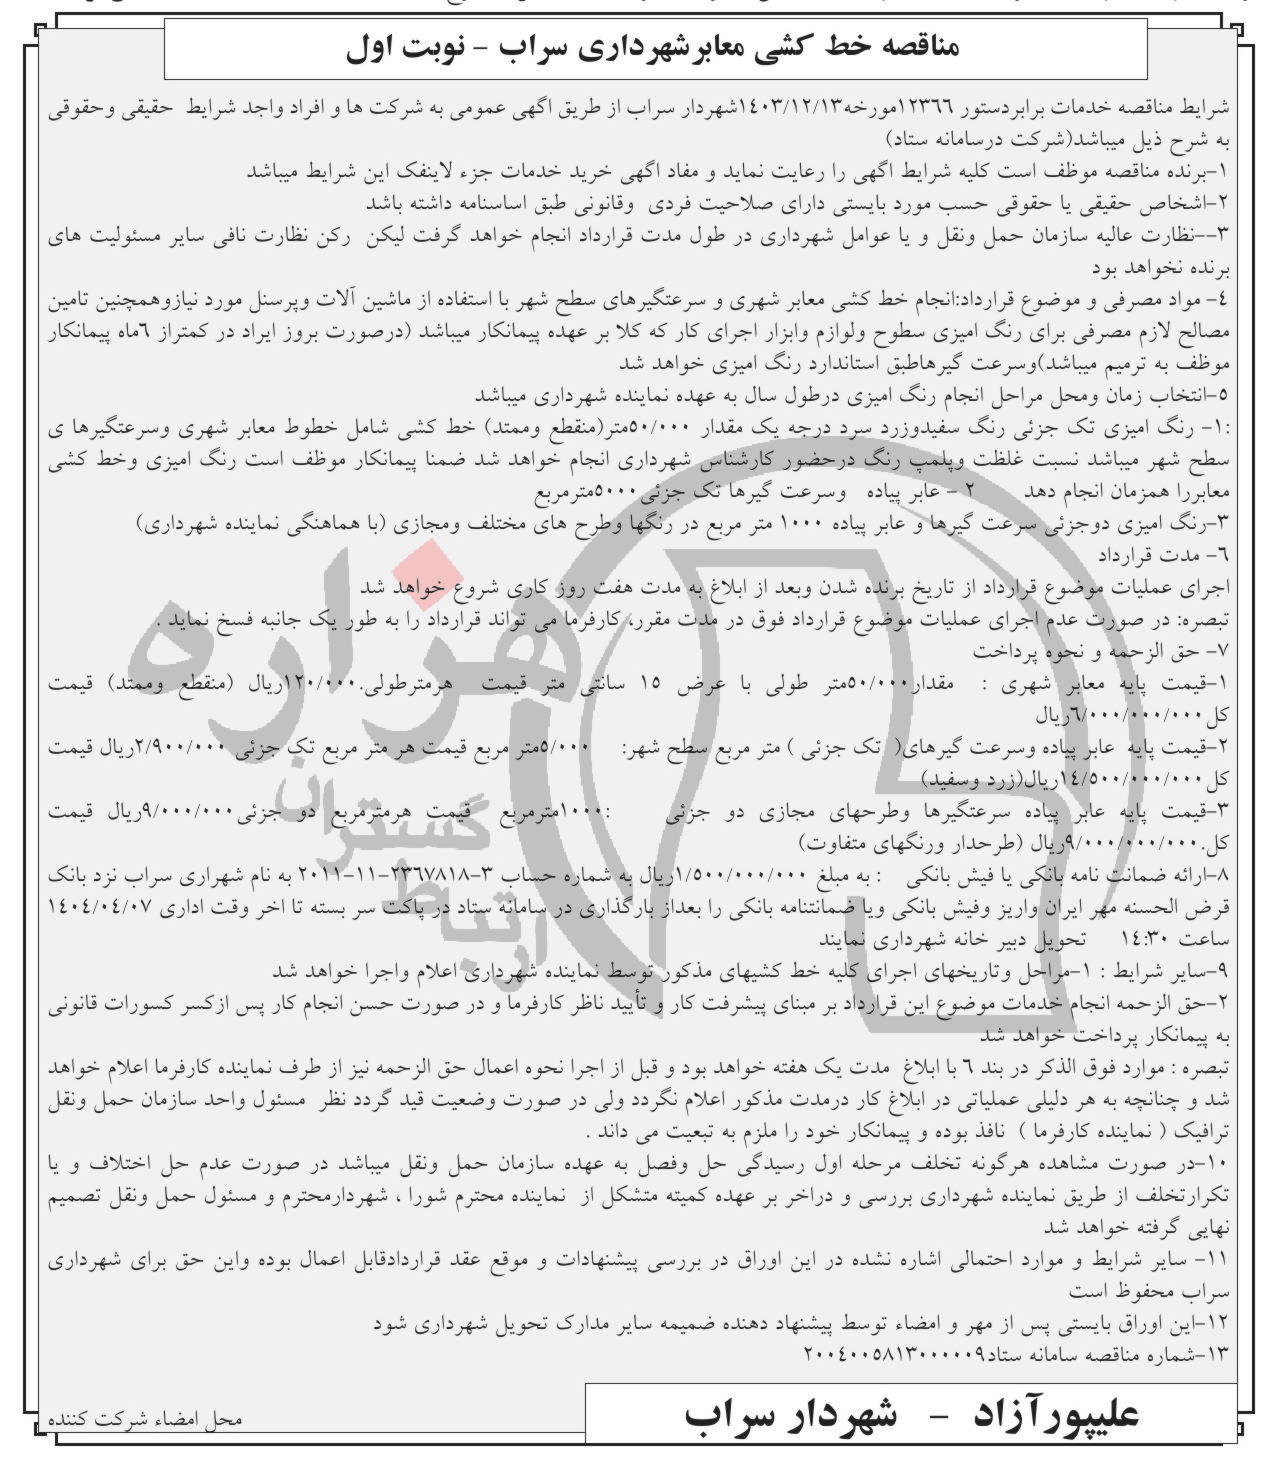 مناقصه خط کشی معابرشهرداری سراب - نوبت اول
شرایط مناقصه خدمات برابردستور ۱۲۳۶۶مورخه۱۴۰۳/۱۲/۱۳شهردار سراب از طریق اگهی عمومی به شرکت ها و افراد واجد شرایط حقیقی وحقوقی
به شرح ذیل میباشد(شرکت درسامانه ستاد)
۱-برنده مناقصه موظف است کلیه شرایط اگهی را رعایت نماید و مفاد اگهی خرید خدمات جزء لاینفک این شرایط میباشد
۲-اشخاص حقیقی یا حقوقی حسب مورد بایستی دارای صلاحیت فردی وقانونی طبق اساسنامه داشته باشد
۳--نظارت عالیه سازمان حمل ونقل و یا عوامل شهرداری در طول مدت قرارداد انجام خواهد گرفت لیکن رکن نظارت نافی سایر مسئولیت های
برنده نخواهد بود
۴- مواد مصرفی و موضوع قرارداد:انجام خط کشی معابر شهری و سرعتگیرهای سطح شهر با استفاده از ماشین آلات وپرسنل مورد نیازوهمچنین تامین
مصالح لازم مصرفی برای رنگ امیزی سطوح ولوازم وابزار اجرای کار که کلا بر عهده پیمانکار میباشد (درصورت بروز ایراد در کمتراز ۶ماه پیمانکار
موظف به ترمیم میباشد)وسرعت گیرهاطبق استاندارد رنگ امیزی خواهد شد
۵-انتخاب زمان ومحل مراحل انجام رنگ امیزی درطول سال به عهده نماینده شهرداری میباشد
:۱- رنگ امیزی تک جزئی رنگ سفیدوزرد سرد درجه یک مقدار ۵۰/۰۰۰متر(منقطع وممتد) خط کشی شامل خطوط معابر شهری وسرعتگیرها ی
سطح شهر میباشد نسبت غلظت وپلمپ رنگ درحضور کارشناس شهرداری انجام خواهد شد ضمنا پیمانکار موظف است رنگ امیزی وخط کشی
معابررا همزمان انجام دهد ۲ - عابر پیاده وسرعت گیرها تک جزئی۵۰۰۰مترمربع
۳-رنگ امیزی دوجزئی سرعت گیرها و عابر پیاده ۱۰۰۰ متر مربع در رنگها وطرح های مختلف ومجازی (با هماهنگی نماینده شهرداری)
۶- مدت قرارداد
اجرای عملیات موضوع قرارداد از تاریخ برنده شدن وبعد از ابلاغ به مدت هفت روز کاری شروع خواهد شد
تبصره: در صورت عدم اجرای عملیات موضوع قرارداد فوق در مدت مقرر، کارفرما می تواند قرارداد را به طور یک جانبه فسخ نماید .
۷- حق الزحمه و نحوه پرداخت
۱-قیمت پایه معابر شهری : مقدار۵۰/۰۰۰متر طولی با عرض ۱۵ سانتی متر قیمت هرمترطولی.۱۲۰/۰۰۰ریال (منقطع وممتد) قیمت
کل۶/۰۰۰/۰۰۰/۰۰۰ریال
۲-قیمت پایه عابر پیاده وسرعت گیرهای( تک جزئی ) متر مربع سطح شهر: ۵/۰۰۰متر مربع قیمت هر متر مربع تک جزئی ۲/۹۰۰/۰۰۰ریال قیمت
کل۱۴/۵۰۰/۰۰۰/۰۰۰ریال(زرد وسفید)
۳-قیمت پایه عابر پیاده سرعتگیرها وطرحهای مجازی دو جزئی :۱۰۰۰مترمربع قیمت هرمترمربع دو جزئی۹/۰۰۰/۰۰۰ریال قیمت
کل.۹/۰۰۰/۰۰۰/۰۰۰ریال (طرحدار ورنگهای متفاوت)
۸-ارائه ضمانت نامه بانکی یا فیش بانکی : به مبلغ ۱/۵۰۰/۰۰۰/۰۰۰ریال به شماره حساب ۳-۲۳۶۷۸۱۸-۱۱-۲۰۱۱ به نام شهراری سراب نزد بانک
قرض الحسنه مهر ایران واریز وفیش بانکی ویا ضمانتنامه بانکی را بعداز بارگذاری در سامانه ستاد در پاکت سر بسته تا اخر وقت اداری ۱۴۰۴/۰۴/۰۷
ساعت ۱۴:۳۰ تحویل دبیر خانه شهرداری نمایند
۹-سایر شرایط : ۱-مراحل وتاریخهای اجرای کلیه خط کشیهای مذکور توسط نماینده شهرداری اعلام واجرا خواهد شد
۲-حق الزحمه انجام خدمات موضوع این قرارداد بر مبنای پیشرفت کار و تأیید ناظر کارفرما و در صورت حسن انجام کار پس ازکسر کسورات قانونی
به پیمانکار پرداخت خواهد شد
تبصره : موارد فوق الذکر در بند ۶ با ابلاغ مدت یک هفته خواهد بود و قبل از اجرا نحوه اعمال حق الزحمه نیز از طرف نماینده کارفرما اعلام خواهد
شد و چنانچه به هر دلیلی عملیاتی در ابلاغ کار درمدت مذکور اعلام نگردد ولی در صورت وضعیت قید گردد نظر مسئول واحد سازمان حمل ونقل
ترافیک ( نماینده کارفرما ) نافذ بوده و پیمانکار خود را ملزم به تبعیت می داند .
۱۰-در صورت مشاهده هرگونه تخلف مرحله اول رسیدگی حل وفصل به عهده سازمان حمل ونقل میباشد در صورت عدم حل اختلاف و یا
تکرارتخلف از طریق نماینده شهرداری بررسی و دراخر بر عهده کمیته متشکل از نماینده محترم شورا ، شهردارمحترم و مسئول حمل ونقل تصمیم
نهایی گرفته خواهد شد
۱۱- سایر شرایط و موارد احتمالی اشاره نشده در این اوراق در بررسی پیشنهادات و موقع عقد قراردادقابل اعمال بوده واین حق برای شهرداری
سراب محفوظ است
۱۲-این اوراق بایستی پس از مهر و امضاء توسط پیشنهاد دهنده ضمیمه سایر مدارک تحویل شهرداری شود
۱۳-شماره مناقصه سامانه ستاد۲۰۰۴۰۰۵۸۱۳۰۰۰۰۰۹
علیپورآزاد - شهردار سراب
محل امضاء شرکت کننده
هزاره
گستران
ارتباط